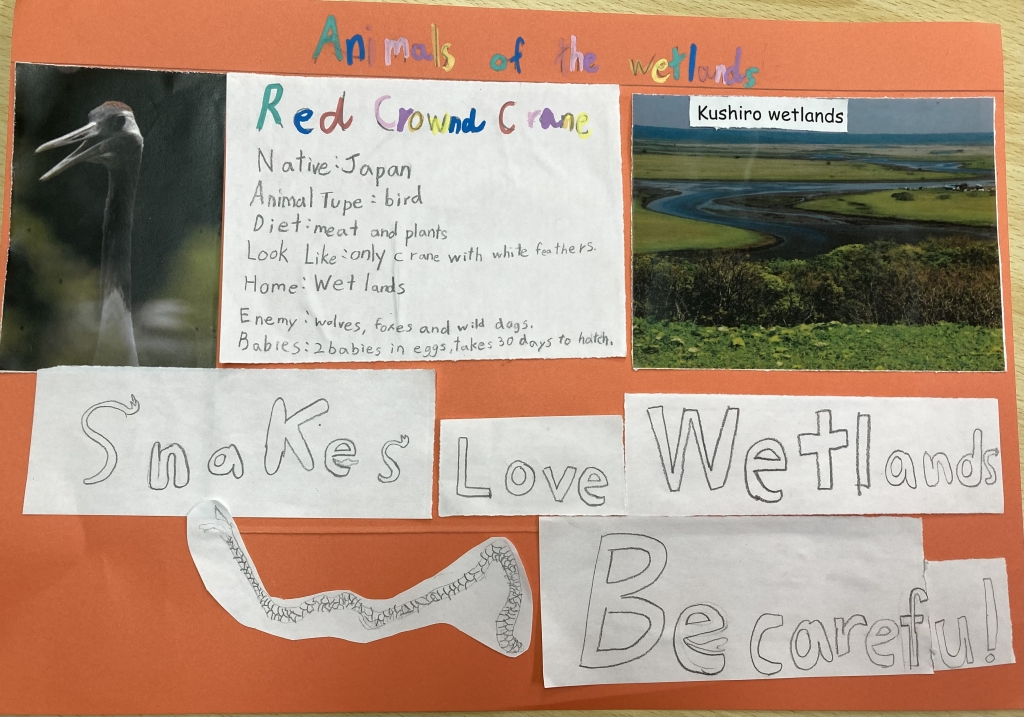 Animals of the wetlands
Red Crownd Crane
Native: Japan
Animal Type: bird
Diet: meat and plants
Look Like: only crane with white feathers.
Home: Wetlands
Enemy: wolves, foxes and wild dogs.
Babies: 2 babies in eggs, takes 30 days to hatch.
Kushiro wetlands
Snakes Love Wetlands
Be careful!